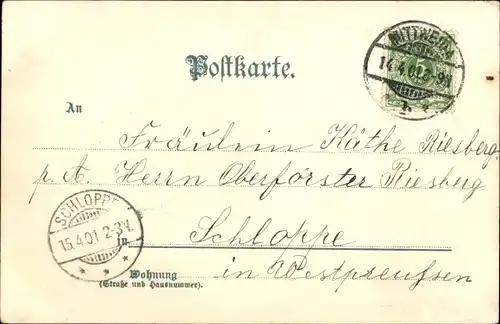 MITTWEIDA
14.4.01.8-9V.
Postkarte.
An
Fräulein Käthe Riesberg
p. A. Herrn Oberförster Riesberg
SCHLOPPE
15.4.01 2-3V.
in Schloppe
in Westpreußen
Wohnung
(Straße und Hausnummer).